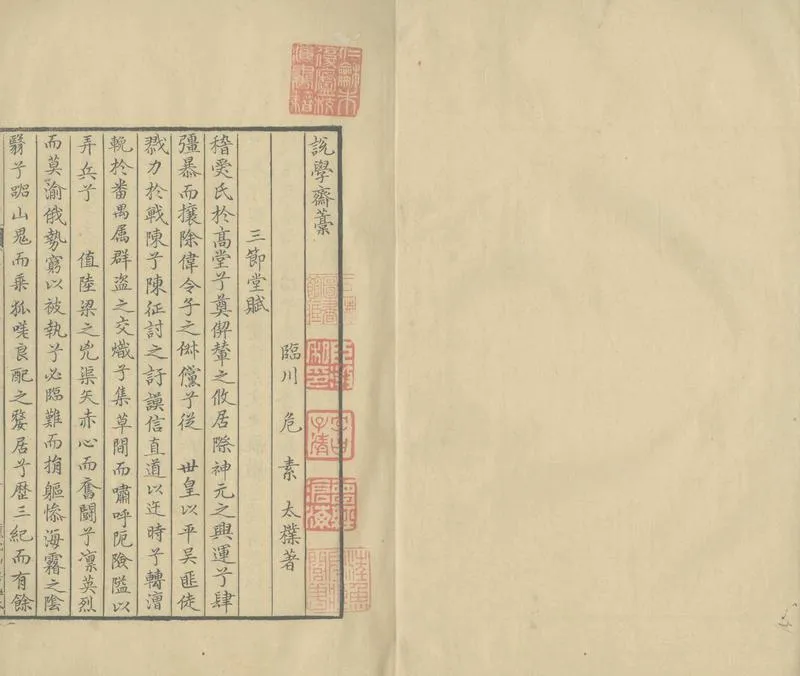 說學齋藁
臨川 危 素 太樸著
三節堂賦
稽奚氏於髙堂兮奠偰輦之攸居際神元之興運兮肆
彊暴而攘除偉令子之俶儻兮從 世皇以平吴匪徒
戮力於戰陳兮陳征討之訏謨信直道以迕時兮轉漕
輓於番禺属群盗之交熾兮集草間而嘯呼阨險隘以
弄兵兮 值陸梁之兇渠矢赤心而奮鬪兮凛英烈
而莫渝俄勢窮以被執兮必臨難而捐軀惨海霧之隂
翳兮跽山鬼而乗狐嘆良配之嫠居兮歴三紀而有餘